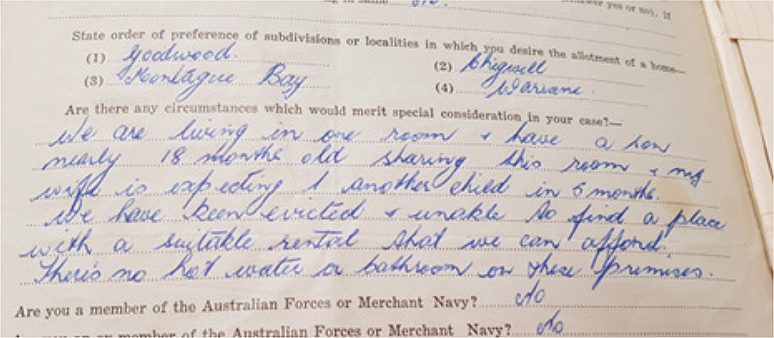 State order of preference of subdivisions or localities in which you desire the allotment of a home—
(1) Goodwood. (2) Chigwell
(3) Montague Bay (4) Warrane.
Are there any circumstances which would merit special consideration in your case?—
We are living in one room & have a son
nearly 18 months old sharing this room & my
wife is expecting another child in 5 months.
We have been evicted & unable to find a place
with a suitable rental that we can afford.
There's no hot water or bathroom on these premises.
Are you a member of the Australian Forces or Merchant Navy? No
member of the Australian Forces or Merchant Navy? No